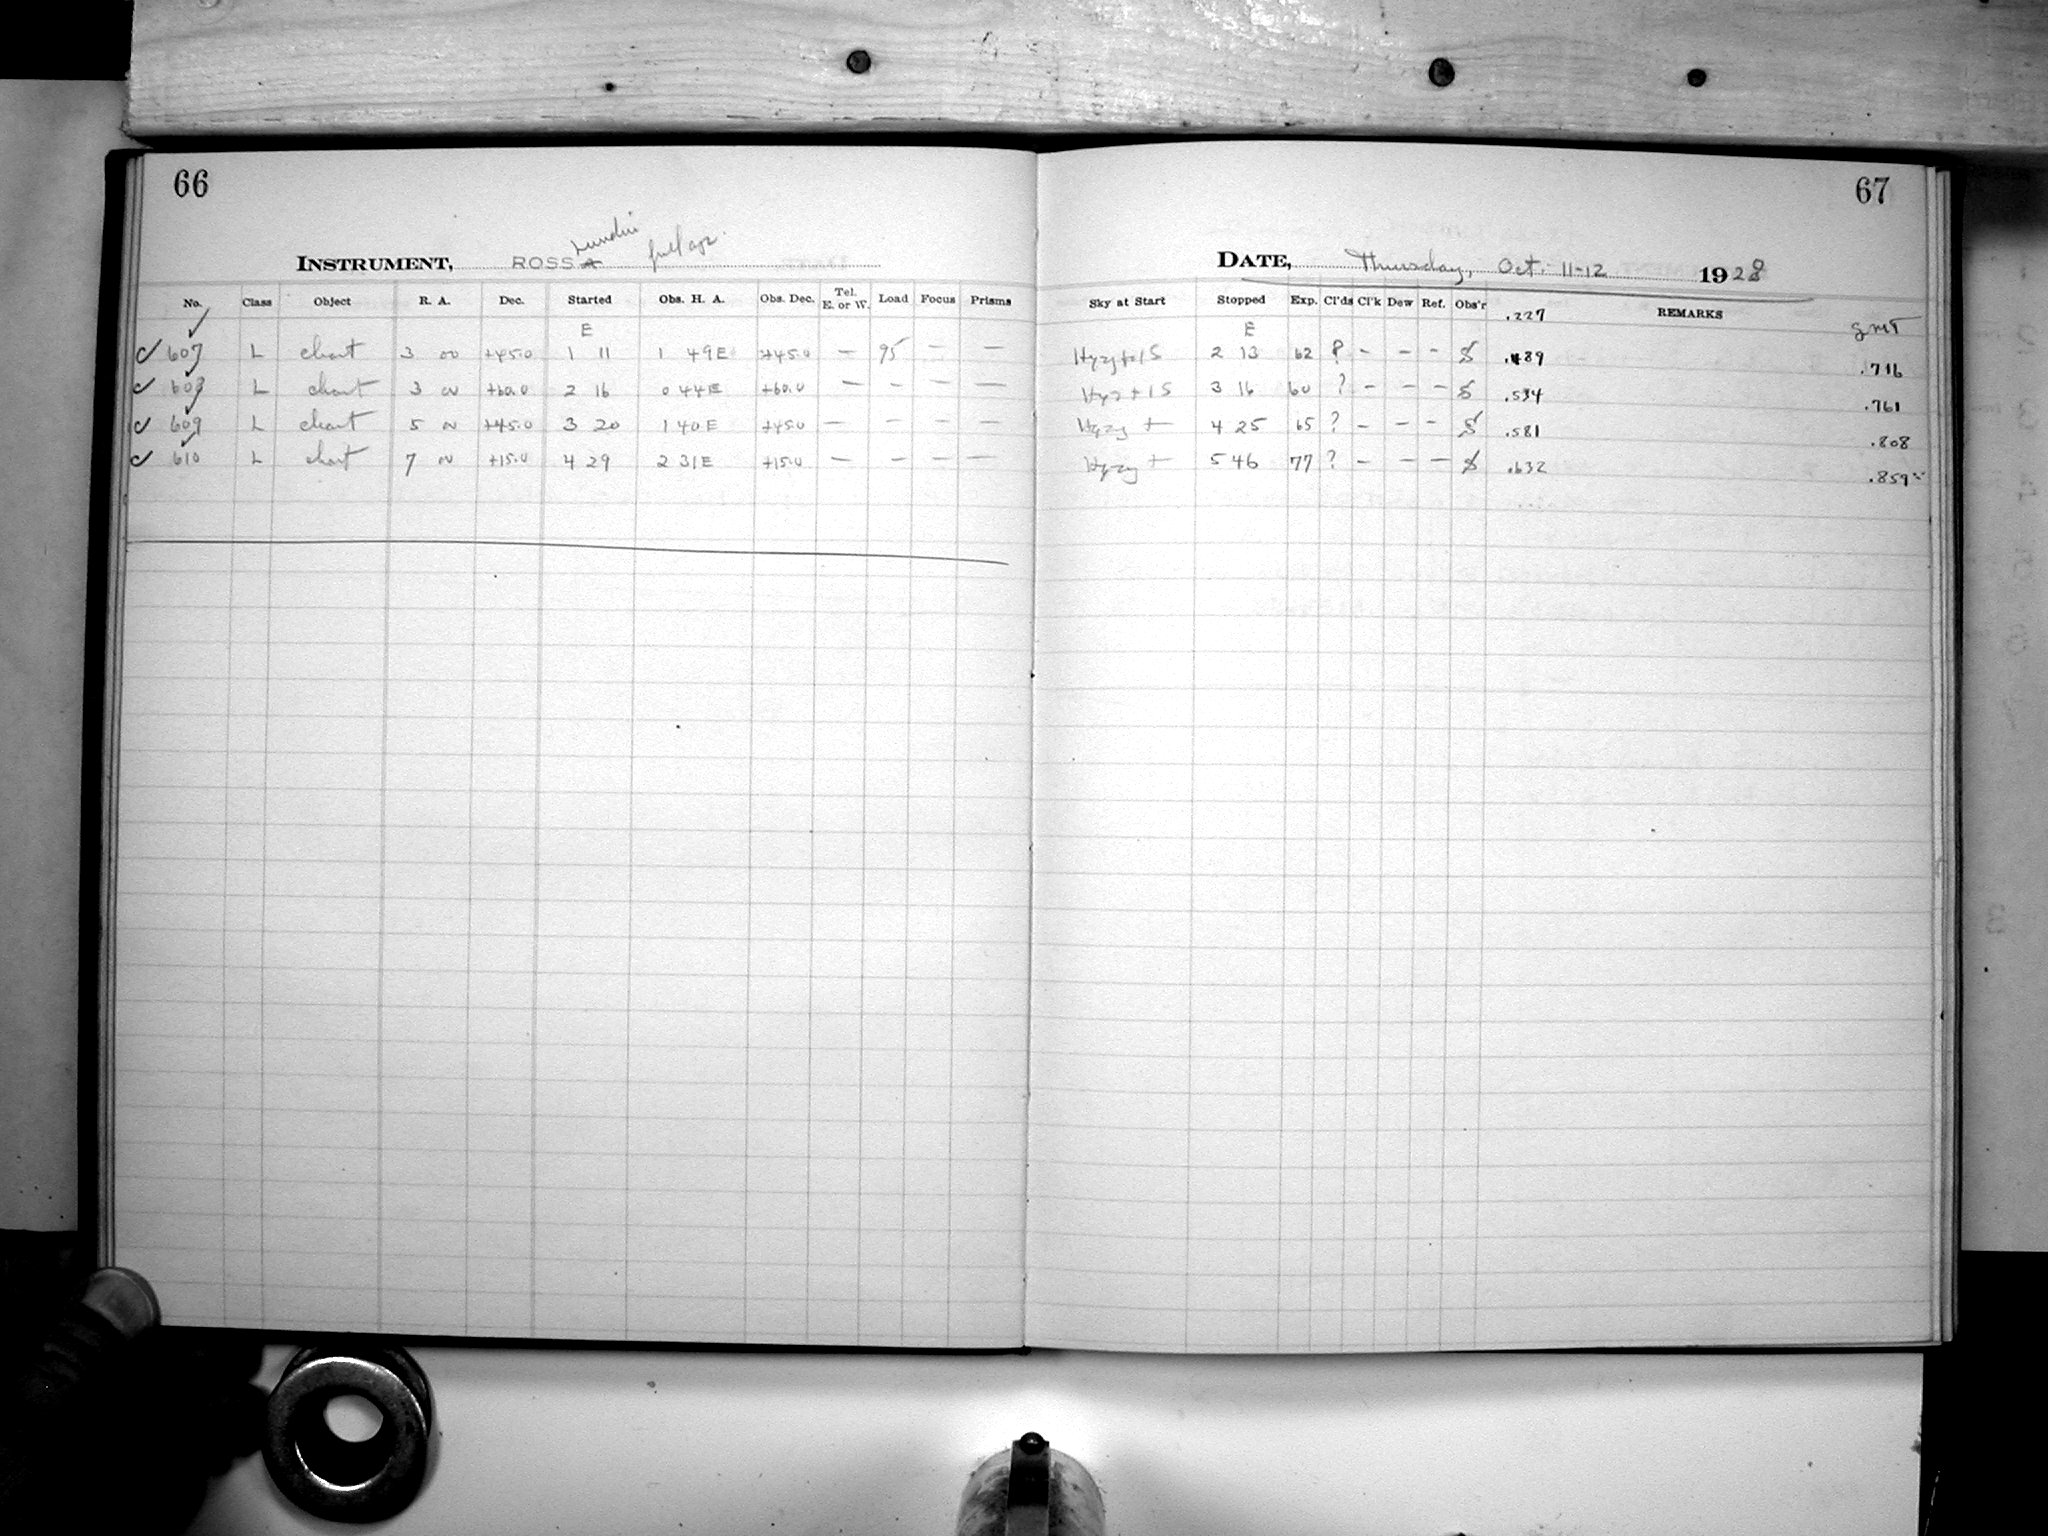 66
INSTRUMENT, ROSS Lundin full ap.
No. Class Object R. A. Dec. Started Obs. H. A. Obs. Dec. Tel. E. or W. Load Focus Prisms
E
607 L chart 3 00 +45.0 1 11 1 49E +45.0 — 95 — —
608 L chart 3 00 +60.0 2 16 0 44E +60.0 — — — —
609 L chart 5 00 +45.0 3 20 1 40E +45.0 — — — —
610 L chart 7 00 +15.0 4 29 2 31E +15.0 — — — —
67
DATE, Thursday, Oct. 11-12 1928
Sky at Start Stopped Exp. Cl'ds Cl'k Dew Ref. Obs'r REMARKS
.227
E GMT
2 13 62 ? – – – S .489 .716
3 16 60 ? – – – S .534 .761
Hzy + 4 25 65 ? – – – S .581 .808
Hzy + 5 46 77 ? – – – S .632 .859